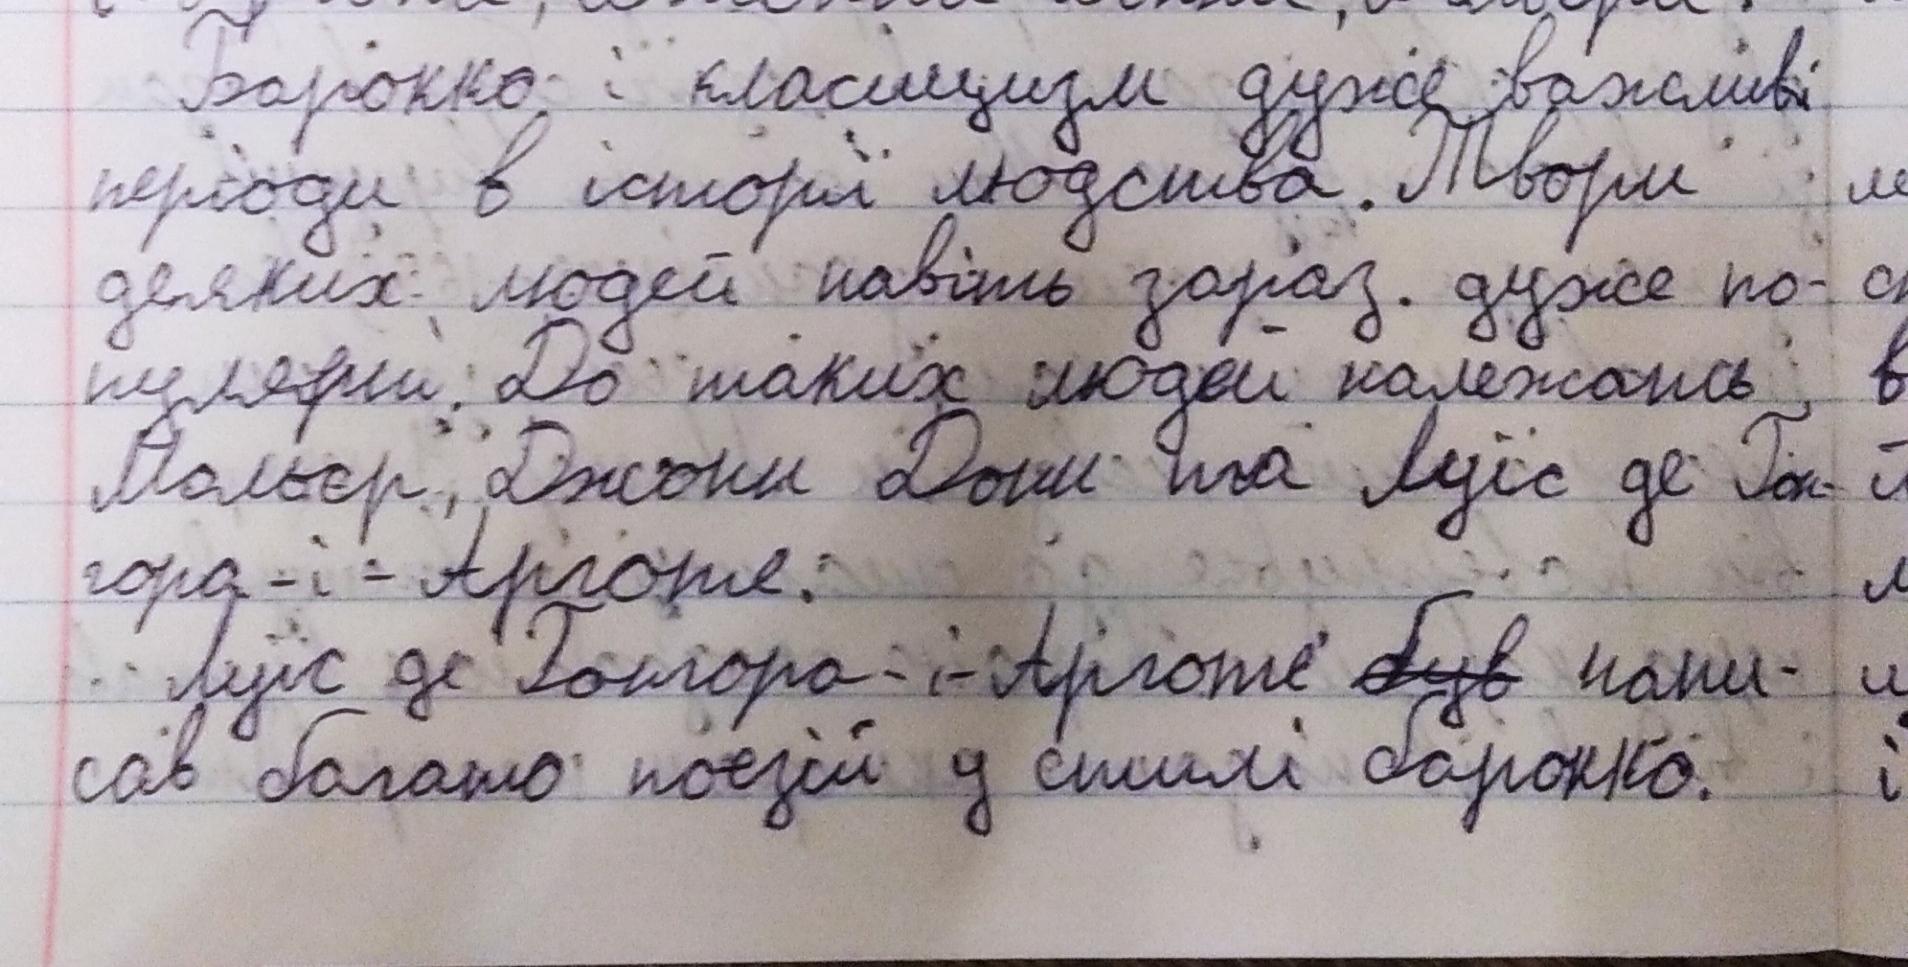 Барокко і класицизм дуже важливі
періоди в історії людства. Твори
деяких людей навіть зараз дуже по-
пулярні. До таких людей належать
Мольєр, Джонн Донн та Луїс де Гон-
гора-і-Арготе.
Луїс де Гонгора-і-Арготе був напи-
сав багато поезій у стилі барокко.